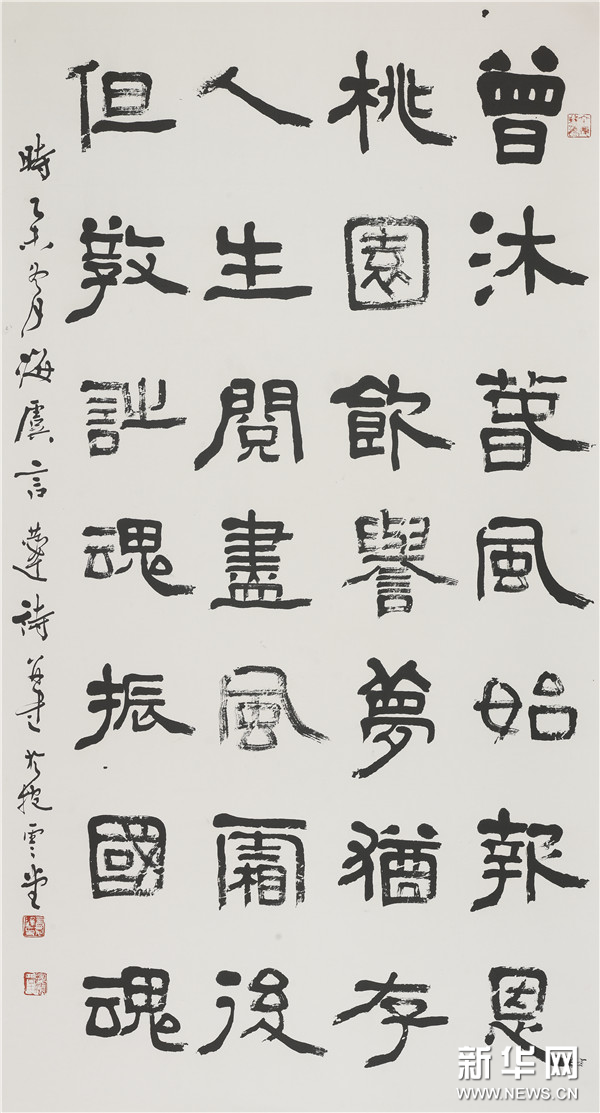 曾沐萅風始報恩
桃園飲譽夢猶存
人生閱盡風霜後
但教詩魂振國魂
時乙未冬月海虞言恭達詩並書於抱雲堂
新华网
WWW.NEWS.CN